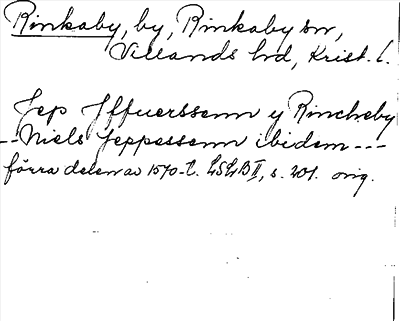 Rinkaby, by, Rinkaby sn,
Villands hd, Krist. l.
Jep Iffuerssenn y Rincheby
-- Niels Jeppessenn ibidem ---
förra delen av 1570-t. LSLB II, s. 201. orig.